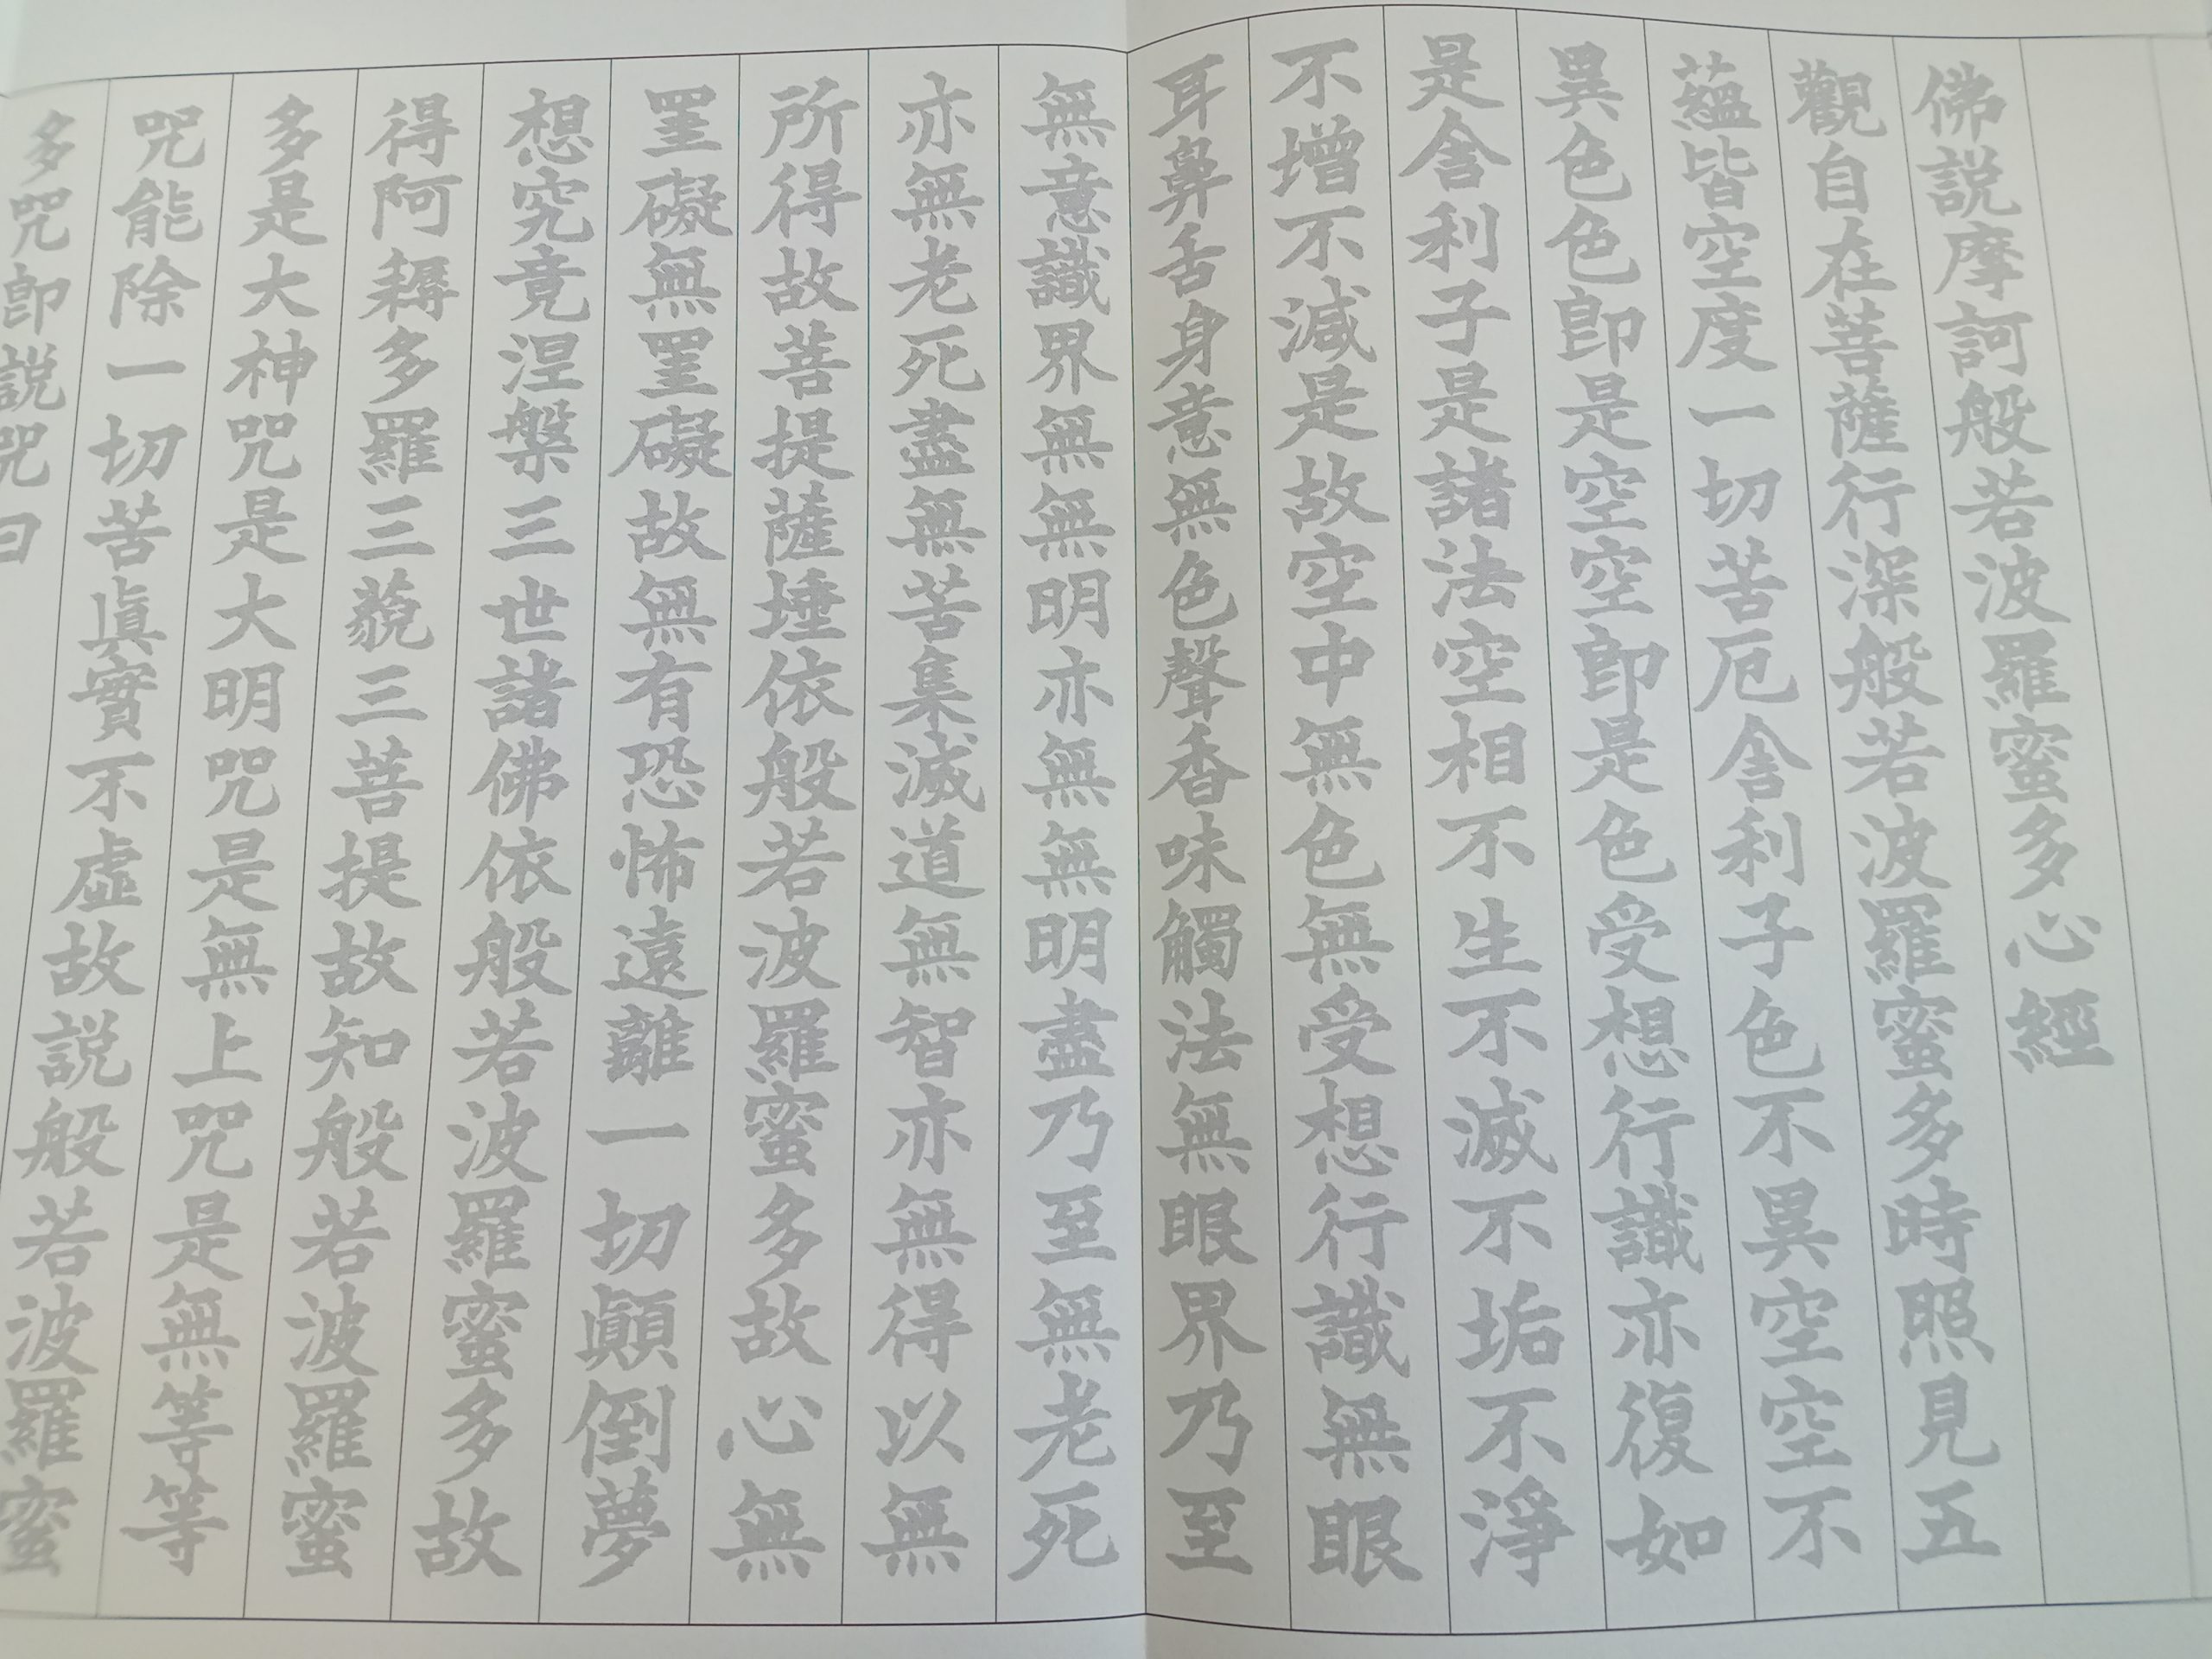 佛説摩訶般若波羅蜜多心經
觀自在菩薩行深般若波羅蜜多時照見五
蘊皆空度一切苦厄舍利子色不異空空不
異色色即是空空即是色受想行識亦復如
是舍利子是諸法空相不生不滅不垢不淨
不增不減是故空中無色無受想行識無眼
耳鼻舌身意無色聲香味觸法無眼界乃至
無意識界無無明亦無無明盡乃至無老死
亦無老死盡無苦集滅道無智亦無得以無
所得故菩提薩埵依般若波羅蜜多故心無
罣礙無罣礙故無有恐怖遠離一切顛倒夢
想究竟涅槃三世諸佛依般若波羅蜜多故
得阿耨多羅三藐三菩提故知般若波羅蜜
多是大神咒是大明咒是無上咒是無等等
咒能除一切苦真實不虛故説般若波羅蜜
多咒即説咒曰